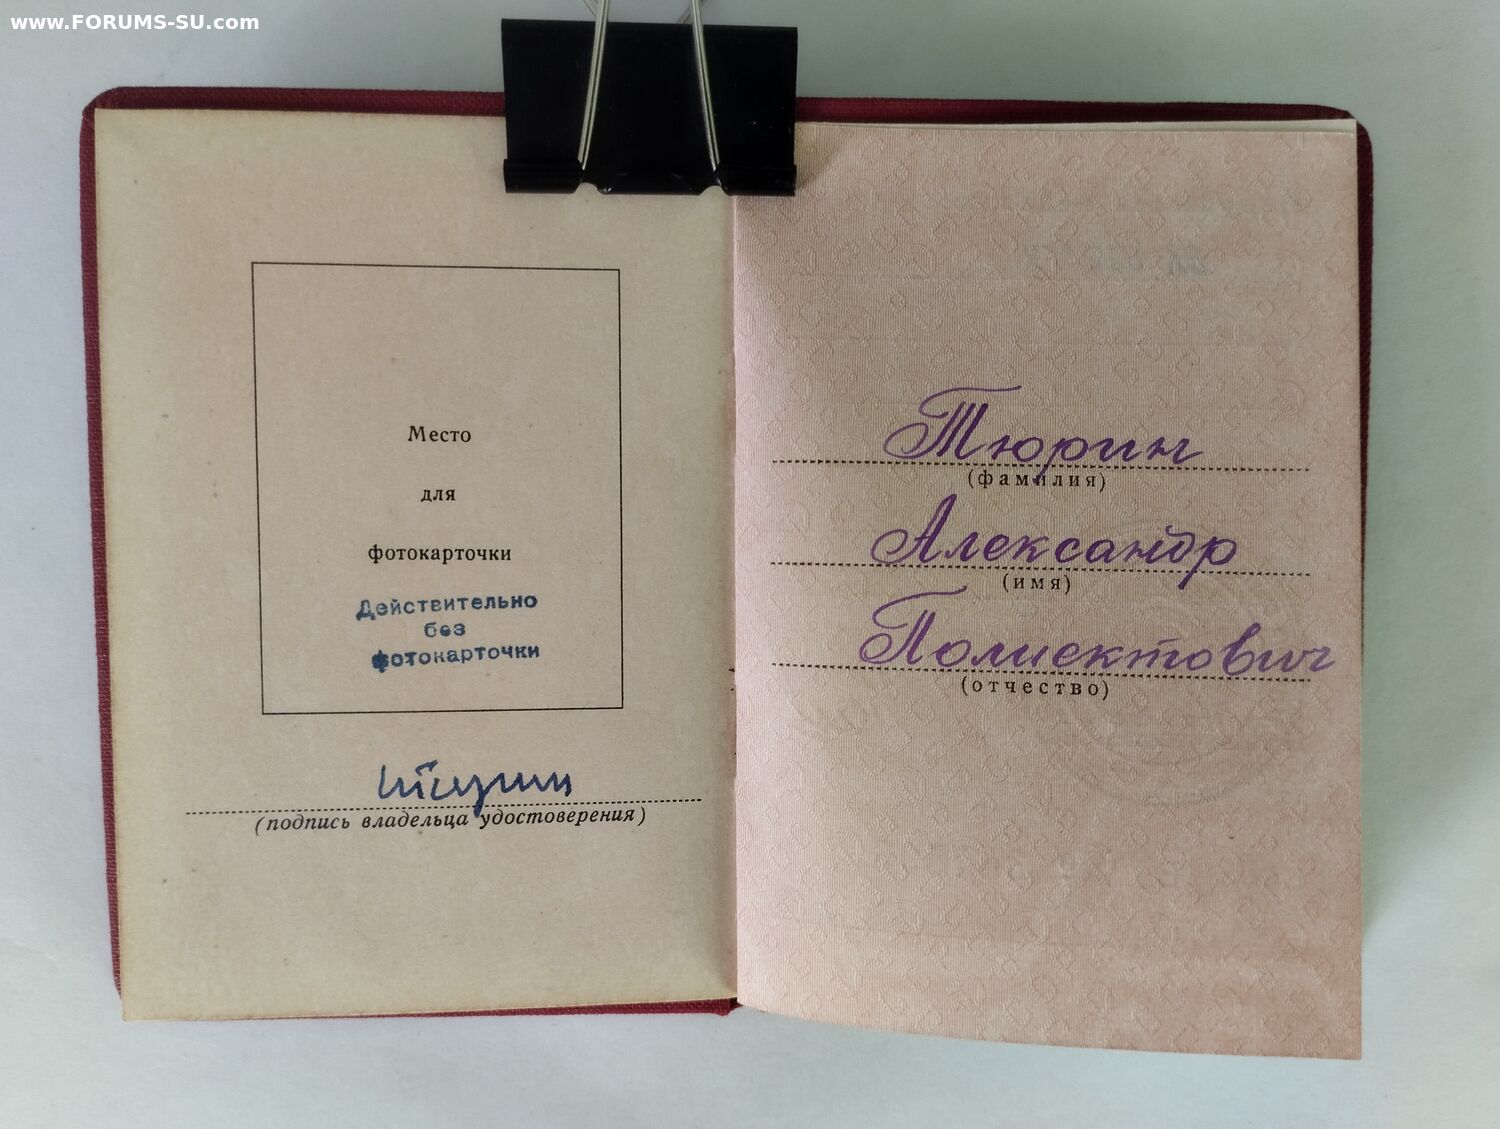 www.FORUMS-SU.com
Место
для
фотокарточки
Действительно
без
фотокарточки
(подпись владельца удостоверения)
Тюрин
(фамилия)
Александр
(имя)
Полиектович
(отчество)